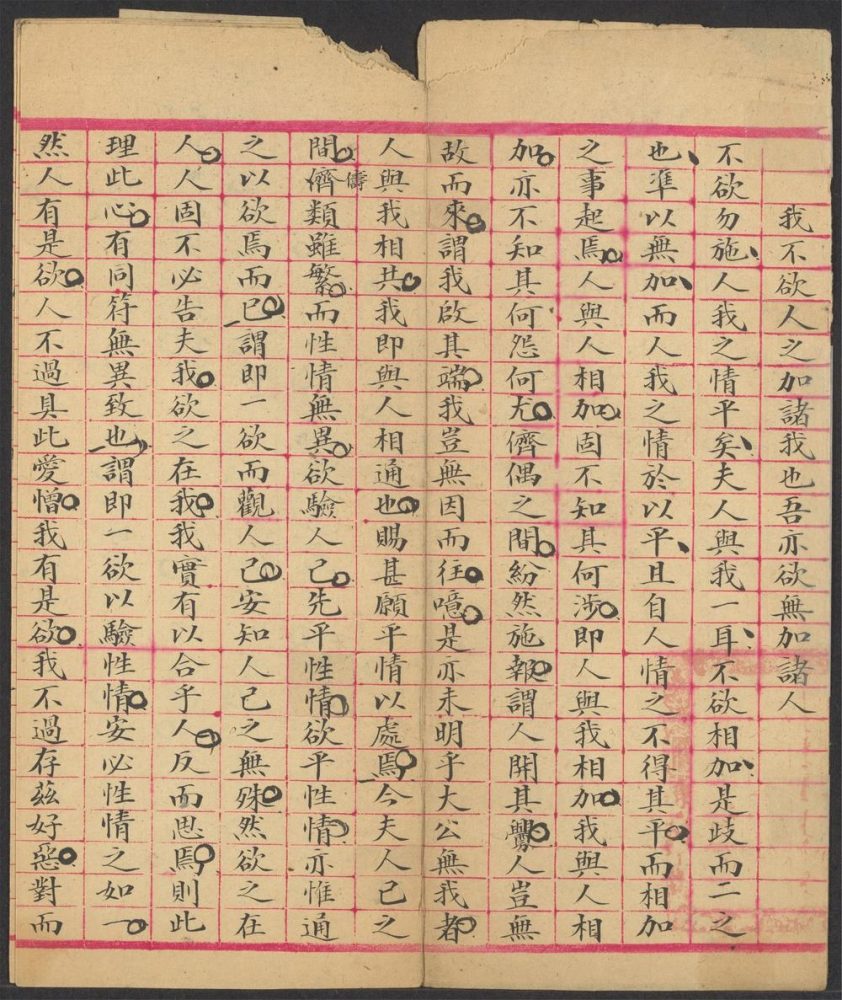 我不欲人之加諸我也吾亦欲無加諸人
不欲勿施、人我之情平矣、夫人與我一耳、不欲相加、是歧而二之
也、準以無加、而人我之情於以平、且自人情之不得其平。而相加
之事起焉。人與人相加。固不知其何涉。即人與我相加。我與人相
加。亦不知其何怨何尤。儕偶之間。紛然施報。謂人開其釁。人豈無
故而來。謂我啟其端。我豈無因而往。噫。是亦未明乎大公無我者。
人與我相共。我即與人相通也。賜甚願平情以處焉。今夫人已之
間。儕儔類雖繁。而性情無異。欲驗人己。先平性情。欲平性情。亦惟通
之以欲焉而已。謂即一欲而觀人己。安知人己之無殊。然欲之在
人。人固不必告夫我。欲之在我。我實有以合乎人。反而思焉。則此
理此心。有同符無異致也。謂即一欲以驗性情。安必性情之如一。
然人有是欲。人不過具此愛憎。我有是欲。我不過存茲好惡。對而